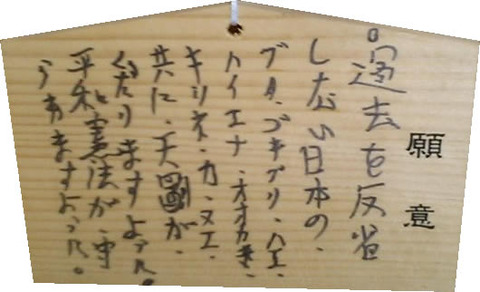 願意
過去を反省
しない日本の、
ブタ、ゴキブリ、ハエ、
ハイエナ、オオカミ、
キツネ、カ、ヌエ、
共に、天が、
くだりますように。
平和憲法が、守
られますように。